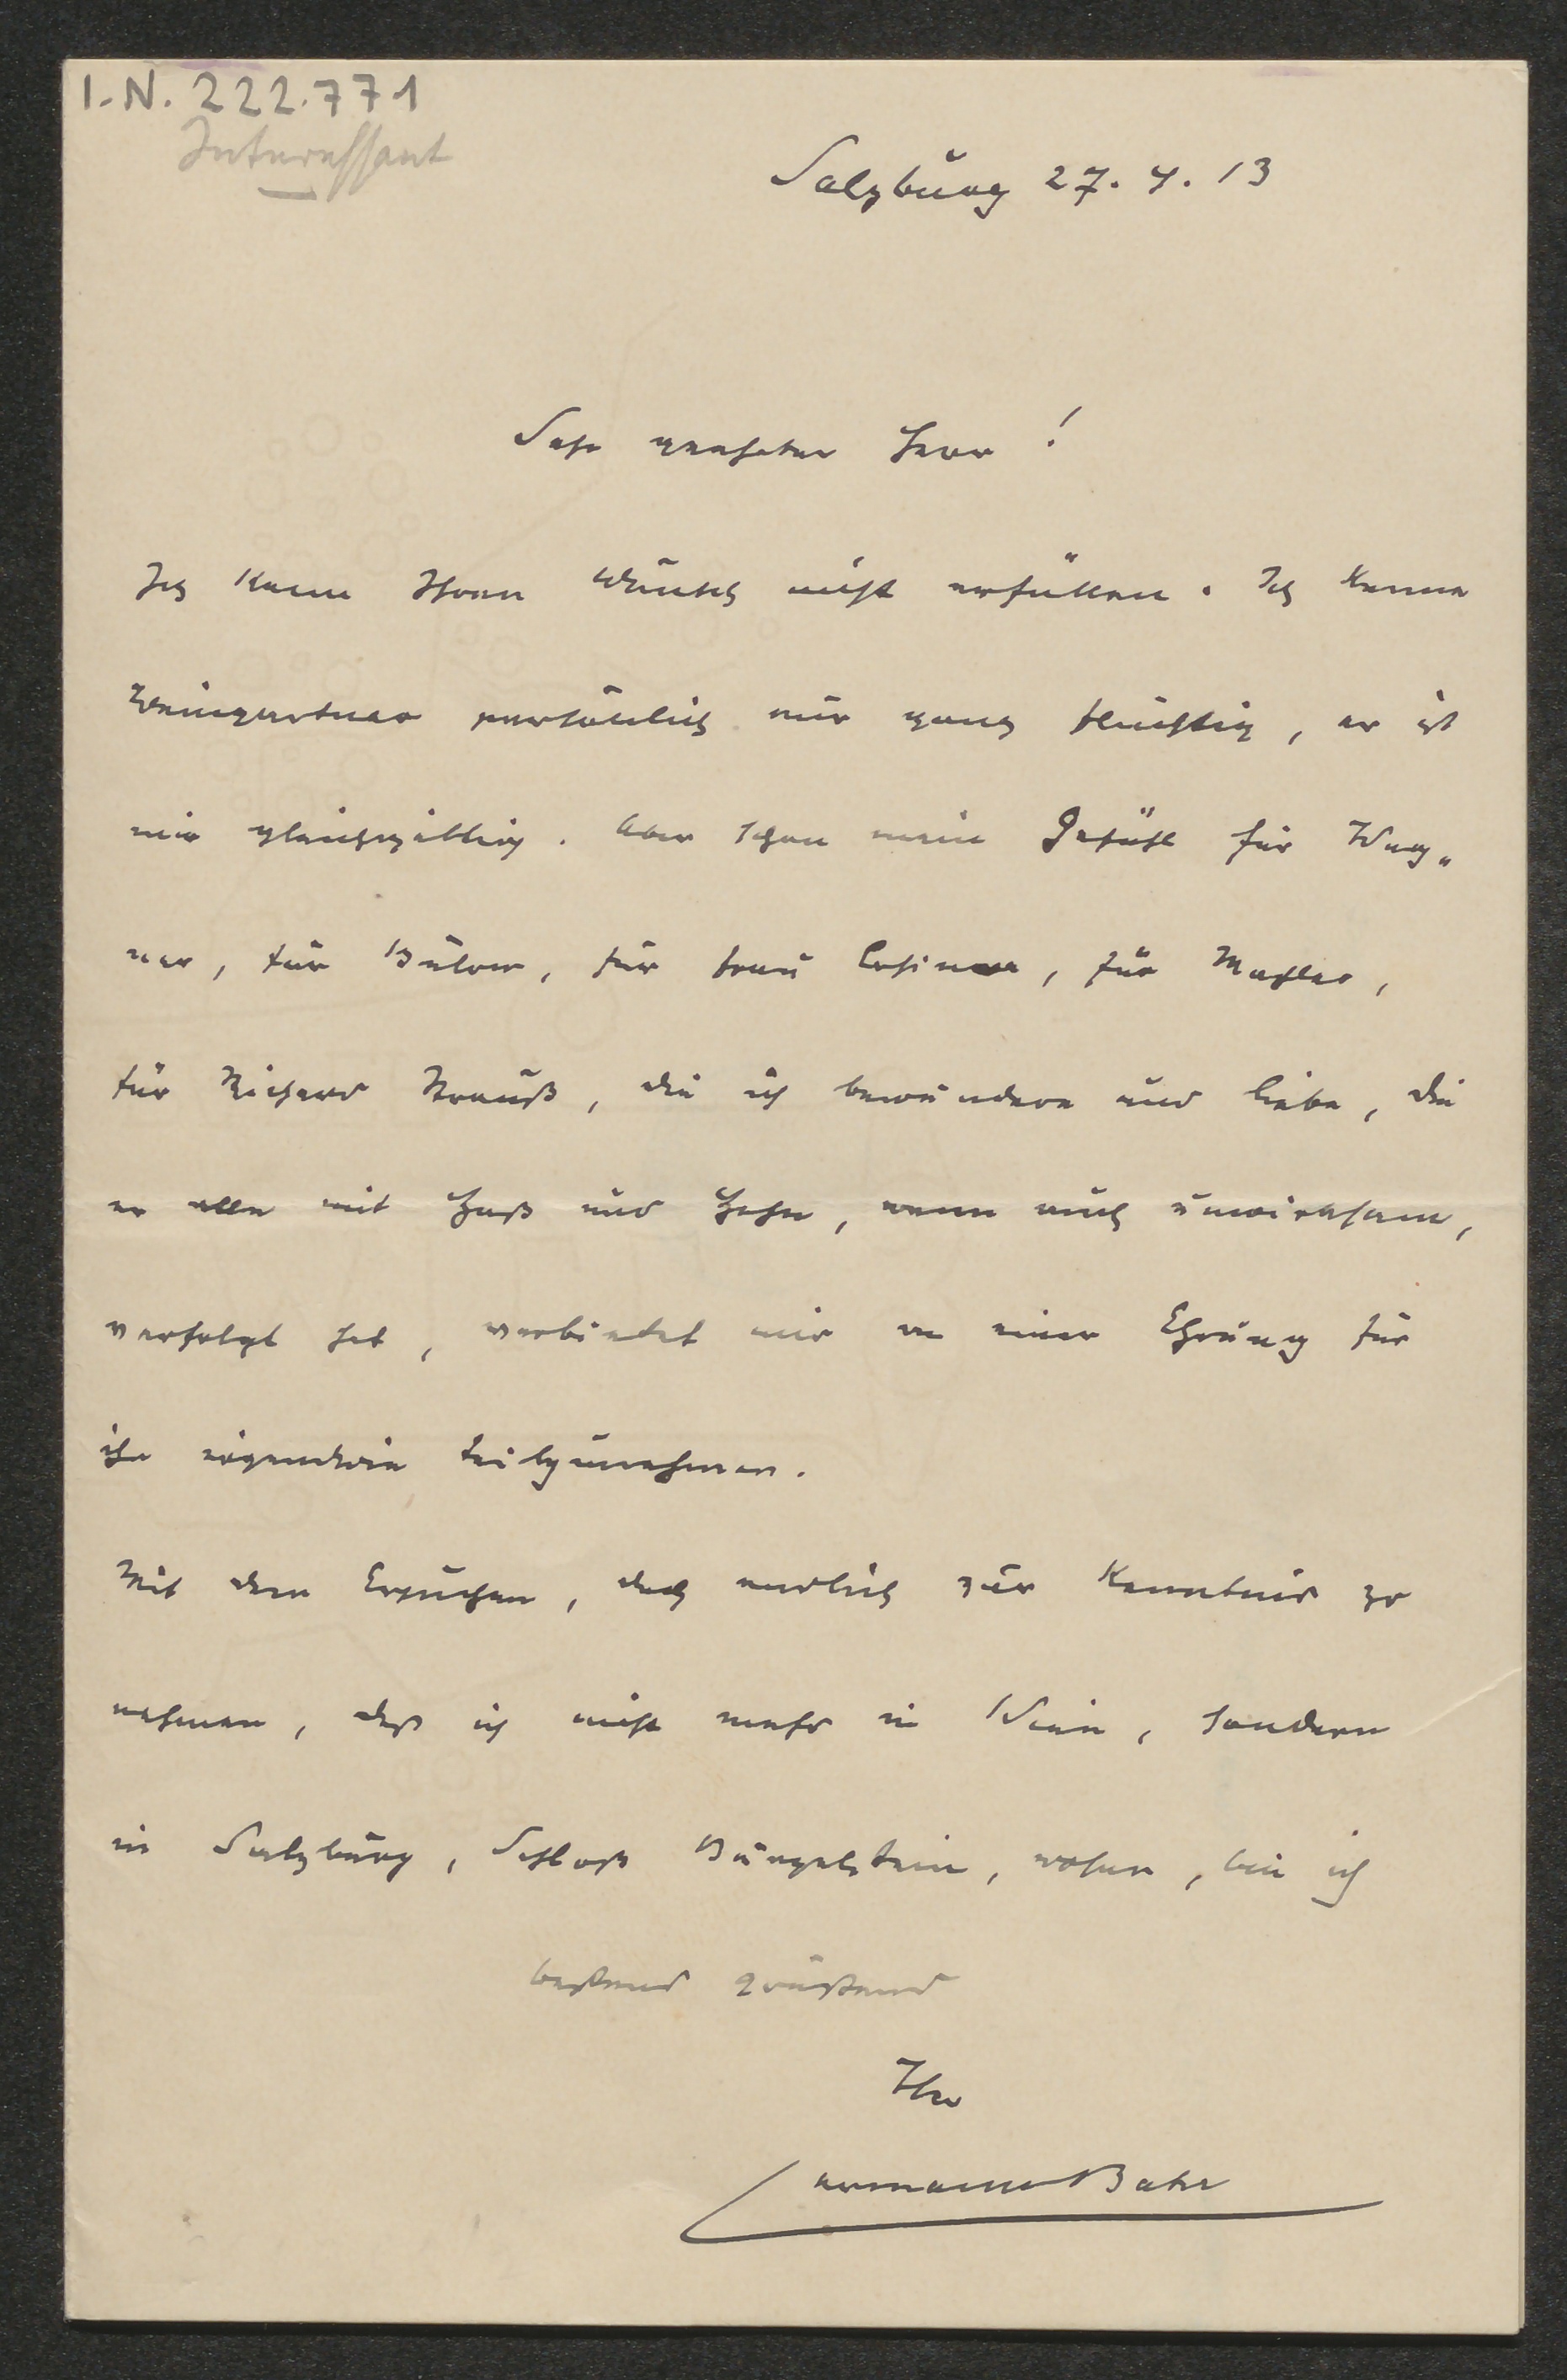 I.N. 222.771
Interessant
Salzburg 27. 4. 13
Sehr geehrter Herr!
Ich kann Ihren Wunsch nicht erfüllen. Ich kenne
Weingartner persönlich nur ganz flüchtig, er ist
mir gleichgiltig. Aber schon mein Gefühl für Wag„
ner, für Bülow, für Frau Cosima, für Mahler,
für Richard Strauß, die ich bewundere und liebe, die
er alle mit Haß und Hohn, wenn auch unwirksam,
verfolgt hat, verbietet mir an einer Ehrung für
ihn irgendwie teilzunehmen.
Mit dem Ersuchen, doch endlich zur Kenntnis zu
nehmen, daß ich nicht mehr in Wien, sondern
in Salzburg, Schloß Bürgelstein, wohne, bin ich
bestens grüßend
Ihr
Hermann Bahr